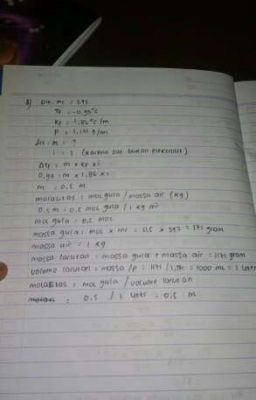 8) Dik. Mr = 342
Tf = -0,93°C
Kf = 1,86°C/m
P = 1,171 g/mL
Dit : M = ?
i = 1 (karena gula bukan elektrolit)
ΔTf = m x Kf x i
0,93 = m x 1,86 x 1
m = 0,5 m
molalitas = mol gula / massa air (kg)
0,5 m = 0,5 mol gula / 1 kg air
mol gula = 0,5 mol
massa gula = mol x Mr = 0,5 x 342 = 171 gram
massa air = 1 kg
massa larutan = massa gula + massa air = 1171 gram
volume larutan = massa / P = 1171 / 1,171 = 1000 mL = 1 liter
molaritas = mol gula / volume larutan
= 0,5 / 1 liter = 0,5 M